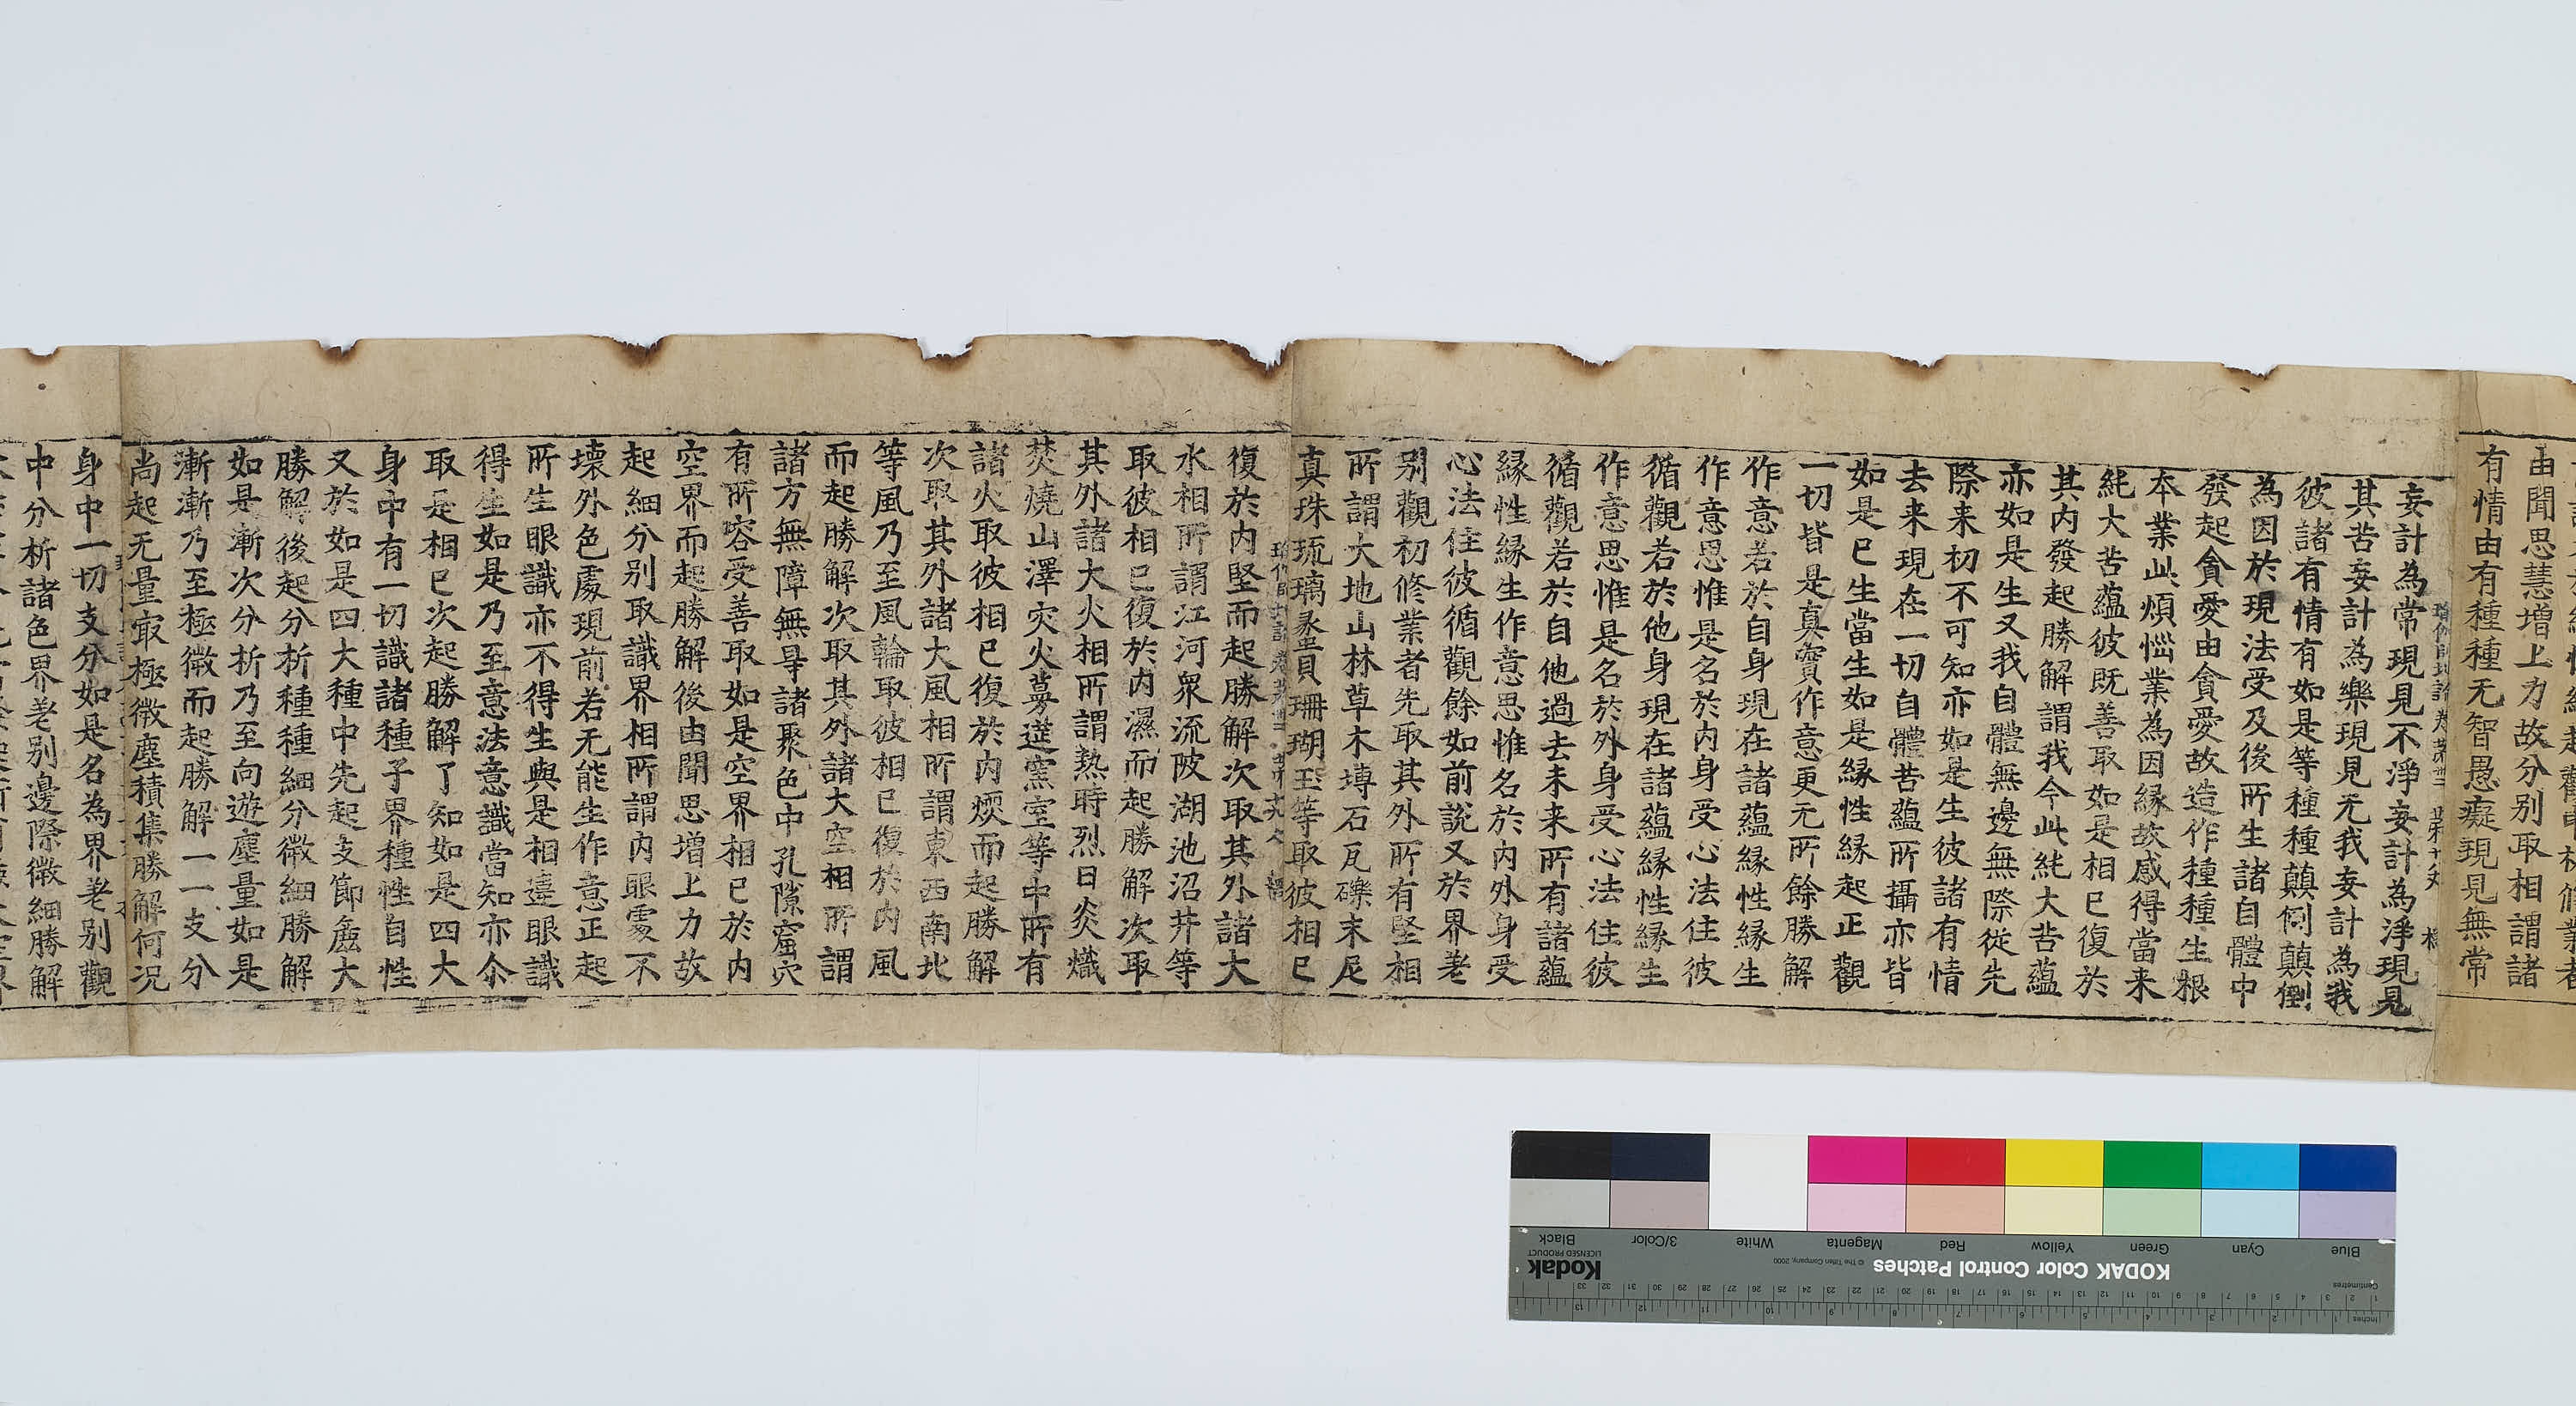 由聞思慧增上力故分別取相謂諸
有情由有種種无智愚癡現見無常
妄計為常現見不淨妄計為淨現見
其苦妄計為樂現見无我妄計為我
彼諸有情有如是等種種顛倒顛倒
為因於現法受及後所生諸自體中
發起貪愛由貪愛故造作種種生根
本業此煩惱業為因緣故感得當来
純大苦蘊彼既善取如是相已復於
其內發起勝解謂我今此純大苦蘊
亦如是生又我自體無邊無際從先
際来初不可知亦如是生彼諸有情
去来現在一切自體苦蘊所攝亦皆
如是已生當生如是緣性緣起正觀
一切皆是真實作意更无所餘勝解
作意若於自身現在諸蘊緣性緣生
作意思惟是名於內身受心法住彼
循觀若於他身現在諸蘊緣性緣生
作意思惟是名於外身受心法住彼
循觀若於自他過去未来所有諸蘊
緣性緣生作意思惟名於內外身受
心法住彼循觀餘如前說又於界差
别觀初修業者先取其外所有堅相
所謂大地山林草木塼石瓦礫末尼
真珠琉璃螺貝珊瑚玉等取彼相已
復於内堅而起勝解次取其外諸大
水相所謂江河衆流陂湖池沼井等
取彼相已復於内濕而起勝解次取
其外諸大火相所謂熱時烈日炎熾
焚燒山澤灾火蔓莚窯室等中所有
諸火取彼相已復於内煗而起勝解
次取其外諸大風相所謂東西南北
等風乃至風輪取彼相已復於内風
而起勝解次取其外諸大空相所謂
諸方無障無㝵諸聚色中孔隙窟穴
有所容受善取如是空界相已於内
空界而起勝解後由聞思增上力故
起細分别取識界相所謂内眼處不
壞外色處現前若无能生作意正起
所生眼識亦不得生與是相違眼識
得生如是乃至意法意識當知亦尒
取是相已次起勝解了知如是四大
身中有一切識諸種子界種性自性
又於如是四大種中先起支節麁大
勝解後起分析種種細分微細勝解
如是漸次分析乃至向遊塵量如是
漸漸乃至極微而起勝解一一支分
尚起无量㝡極微塵積集勝解何況
身中一切支分如是名為界差别觀
中分析諸色界差别邊際微細勝解
KODAK Color Control Patches
© The Tiffen Company, 2000
Kodak
LICENSED PRODUCT
Centimetres
Inches
Blue
Cyan
Green
Yellow
Red
Magenta
White
3/Color
Black